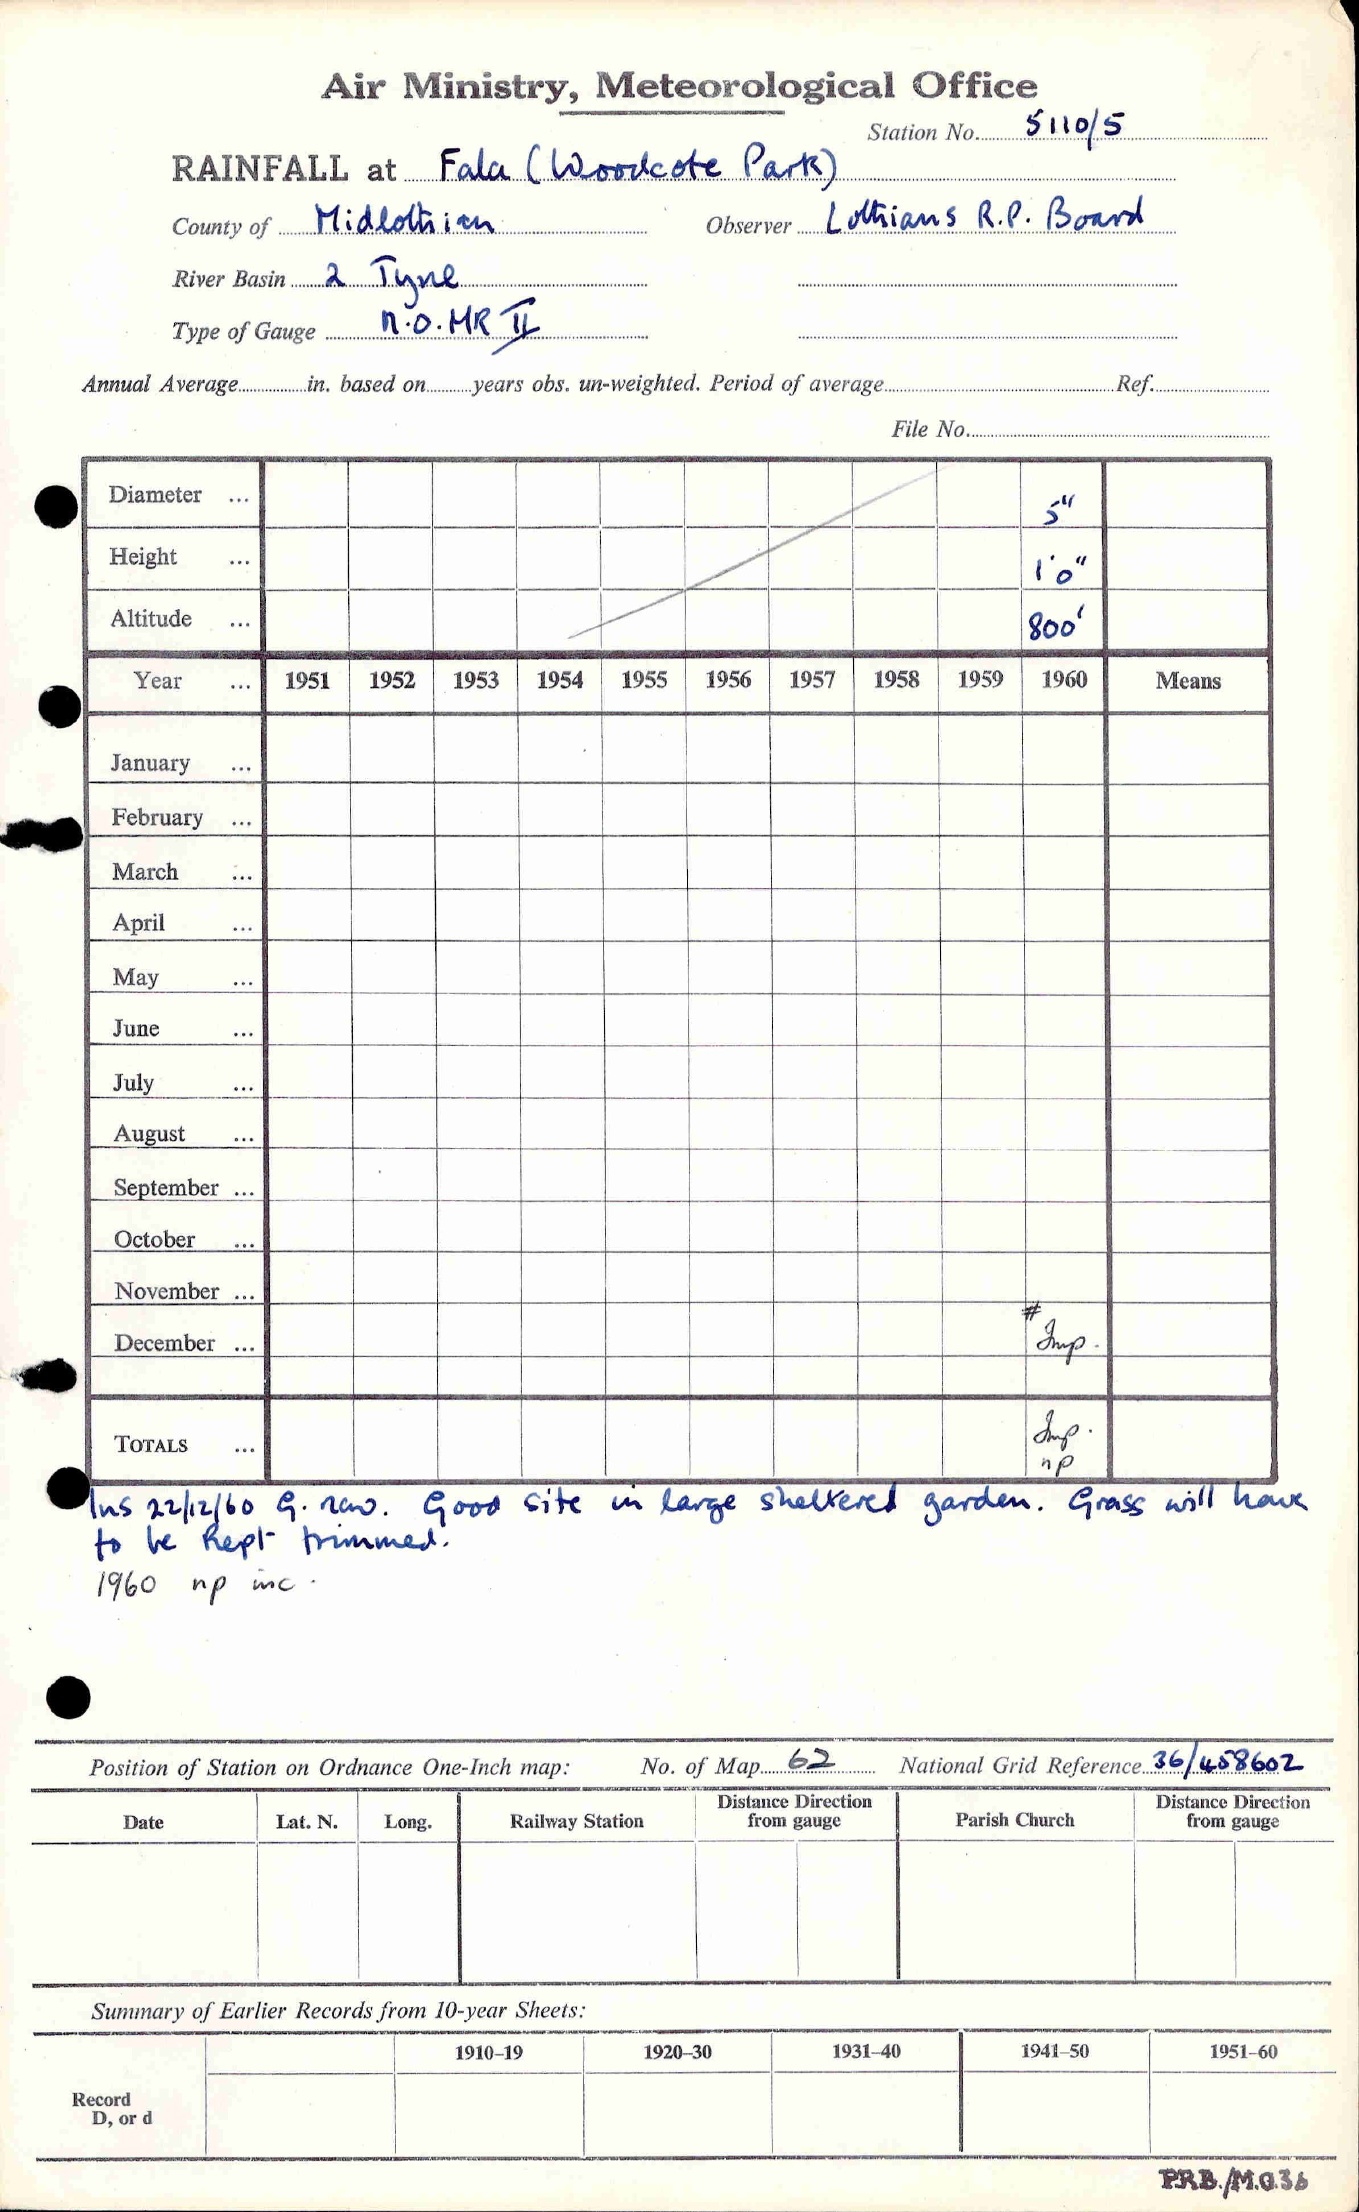 Air Ministry, Meteorological Office
Station No. 5110/5
RAINFALL at Fala (Woodcote Park)
County of Midlothian Observer Lothians R.P. Board
River Basin 2 Tyne
Type of Gauge M.O. MK II
Annual Average in. based on years obs. un-weighted. Period of average Ref.
File No.
Diameter ... 5"
Height ... 1'0"
Altitude ... 800'
Year ... 1951 1952 1953 1954 1955 1956 1957 1958 1959 1960 Means
January ...
February ...
March ...
April ...
May ...
June ...
July ...
August ...
September ...
October ...
November ...
December ... # Imp.
TOTALS ... Imp. np
Ins 22/12/60 G. Good site in large sheltered garden. Grass will have
to be kept trimmed.
1960 np inc.
Position of Station on Ordnance One-Inch map: No. of Map 62 National Grid Reference 36/458602
Date Lat. N. Long. Railway Station Distance Direction from gauge Parish Church Distance Direction from gauge
Summary of Earlier Records from 10-year Sheets:
1910–19 1920–30 1931–40 1941–50 1951–60
Record
D, or d
PRB./M.O.36